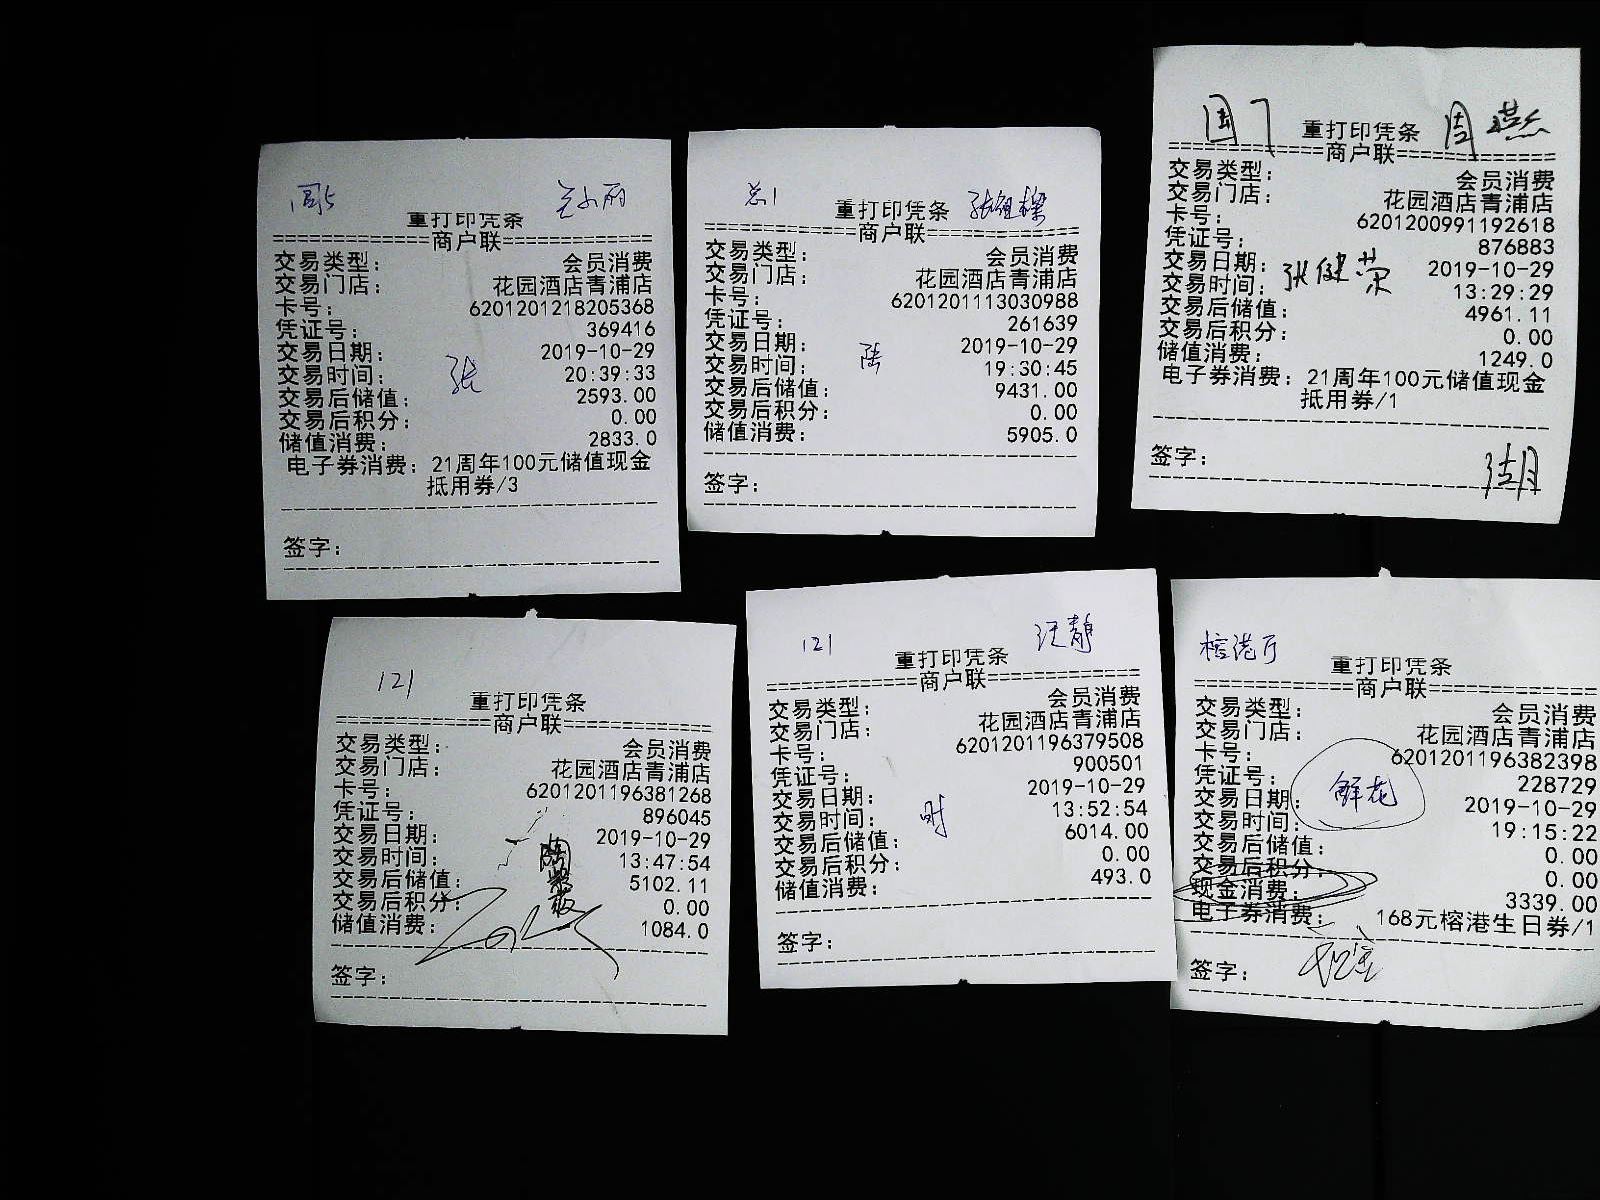 重打印凭条
============商户联============
交易类型： 会员消费
交易门店： 花园酒店青浦店
卡号： 6201201218205368
凭证号： 369416
交易日期： 2019-10-29
交易时间： 20:39:33
交易后储值： 2593.00
交易后积分： 0.00
储值消费： 2833.0
电子券消费：21周年100元储值现金
抵用券/3
签字：
张
总1 张祖樑
重打印凭条
============商户联============
交易类型： 会员消费
交易门店： 花园酒店青浦店
卡号： 6201201113030988
凭证号： 261639
交易日期： 2019-10-29
交易时间： 19:30:45
交易后储值： 9431.00
交易后积分： 0.00
储值消费： 5905.0
签字：
陆
周燕
重打印凭条
============商户联============
交易类型： 会员消费
交易门店： 花园酒店青浦店
卡号： 6201200991192618
凭证号： 876883
交易日期： 2019-10-29
交易时间： 13:29:29
交易后储值： 4961.11
交易后积分： 0.00
储值消费： 1249.0
电子券消费：21周年100元储值现金
抵用券/1
签字：
张健荣
121
重打印凭条
============商户联============
交易类型： 会员消费
交易门店： 花园酒店青浦店
卡号： 6201201196381268
凭证号： 896045
交易日期： 2019-10-29
交易时间： 13:47:54
交易后储值： 5102.11
交易后积分： 0.00
储值消费： 1084.0
签字：
121 汪静
重打印凭条
============商户联============
交易类型： 会员消费
交易门店： 花园酒店青浦店
卡号： 6201201196379508
凭证号： 900501
交易日期： 2019-10-29
交易时间： 13:52:54
交易后储值： 6014.00
交易后积分： 0.00
储值消费： 493.0
签字：
榕港厅
重打印凭条
============商户联============
交易类型： 会员消费
交易门店： 花园酒店青浦店
卡号： 6201201196382398
凭证号： 228729
交易日期： 2019-10-29
交易时间： 19:15:22
交易后储值： 0.00
交易后积分： 0.00
现金消费： 3339.00
电子券消费： 168元榕港生日券/1
签字：
鲜花